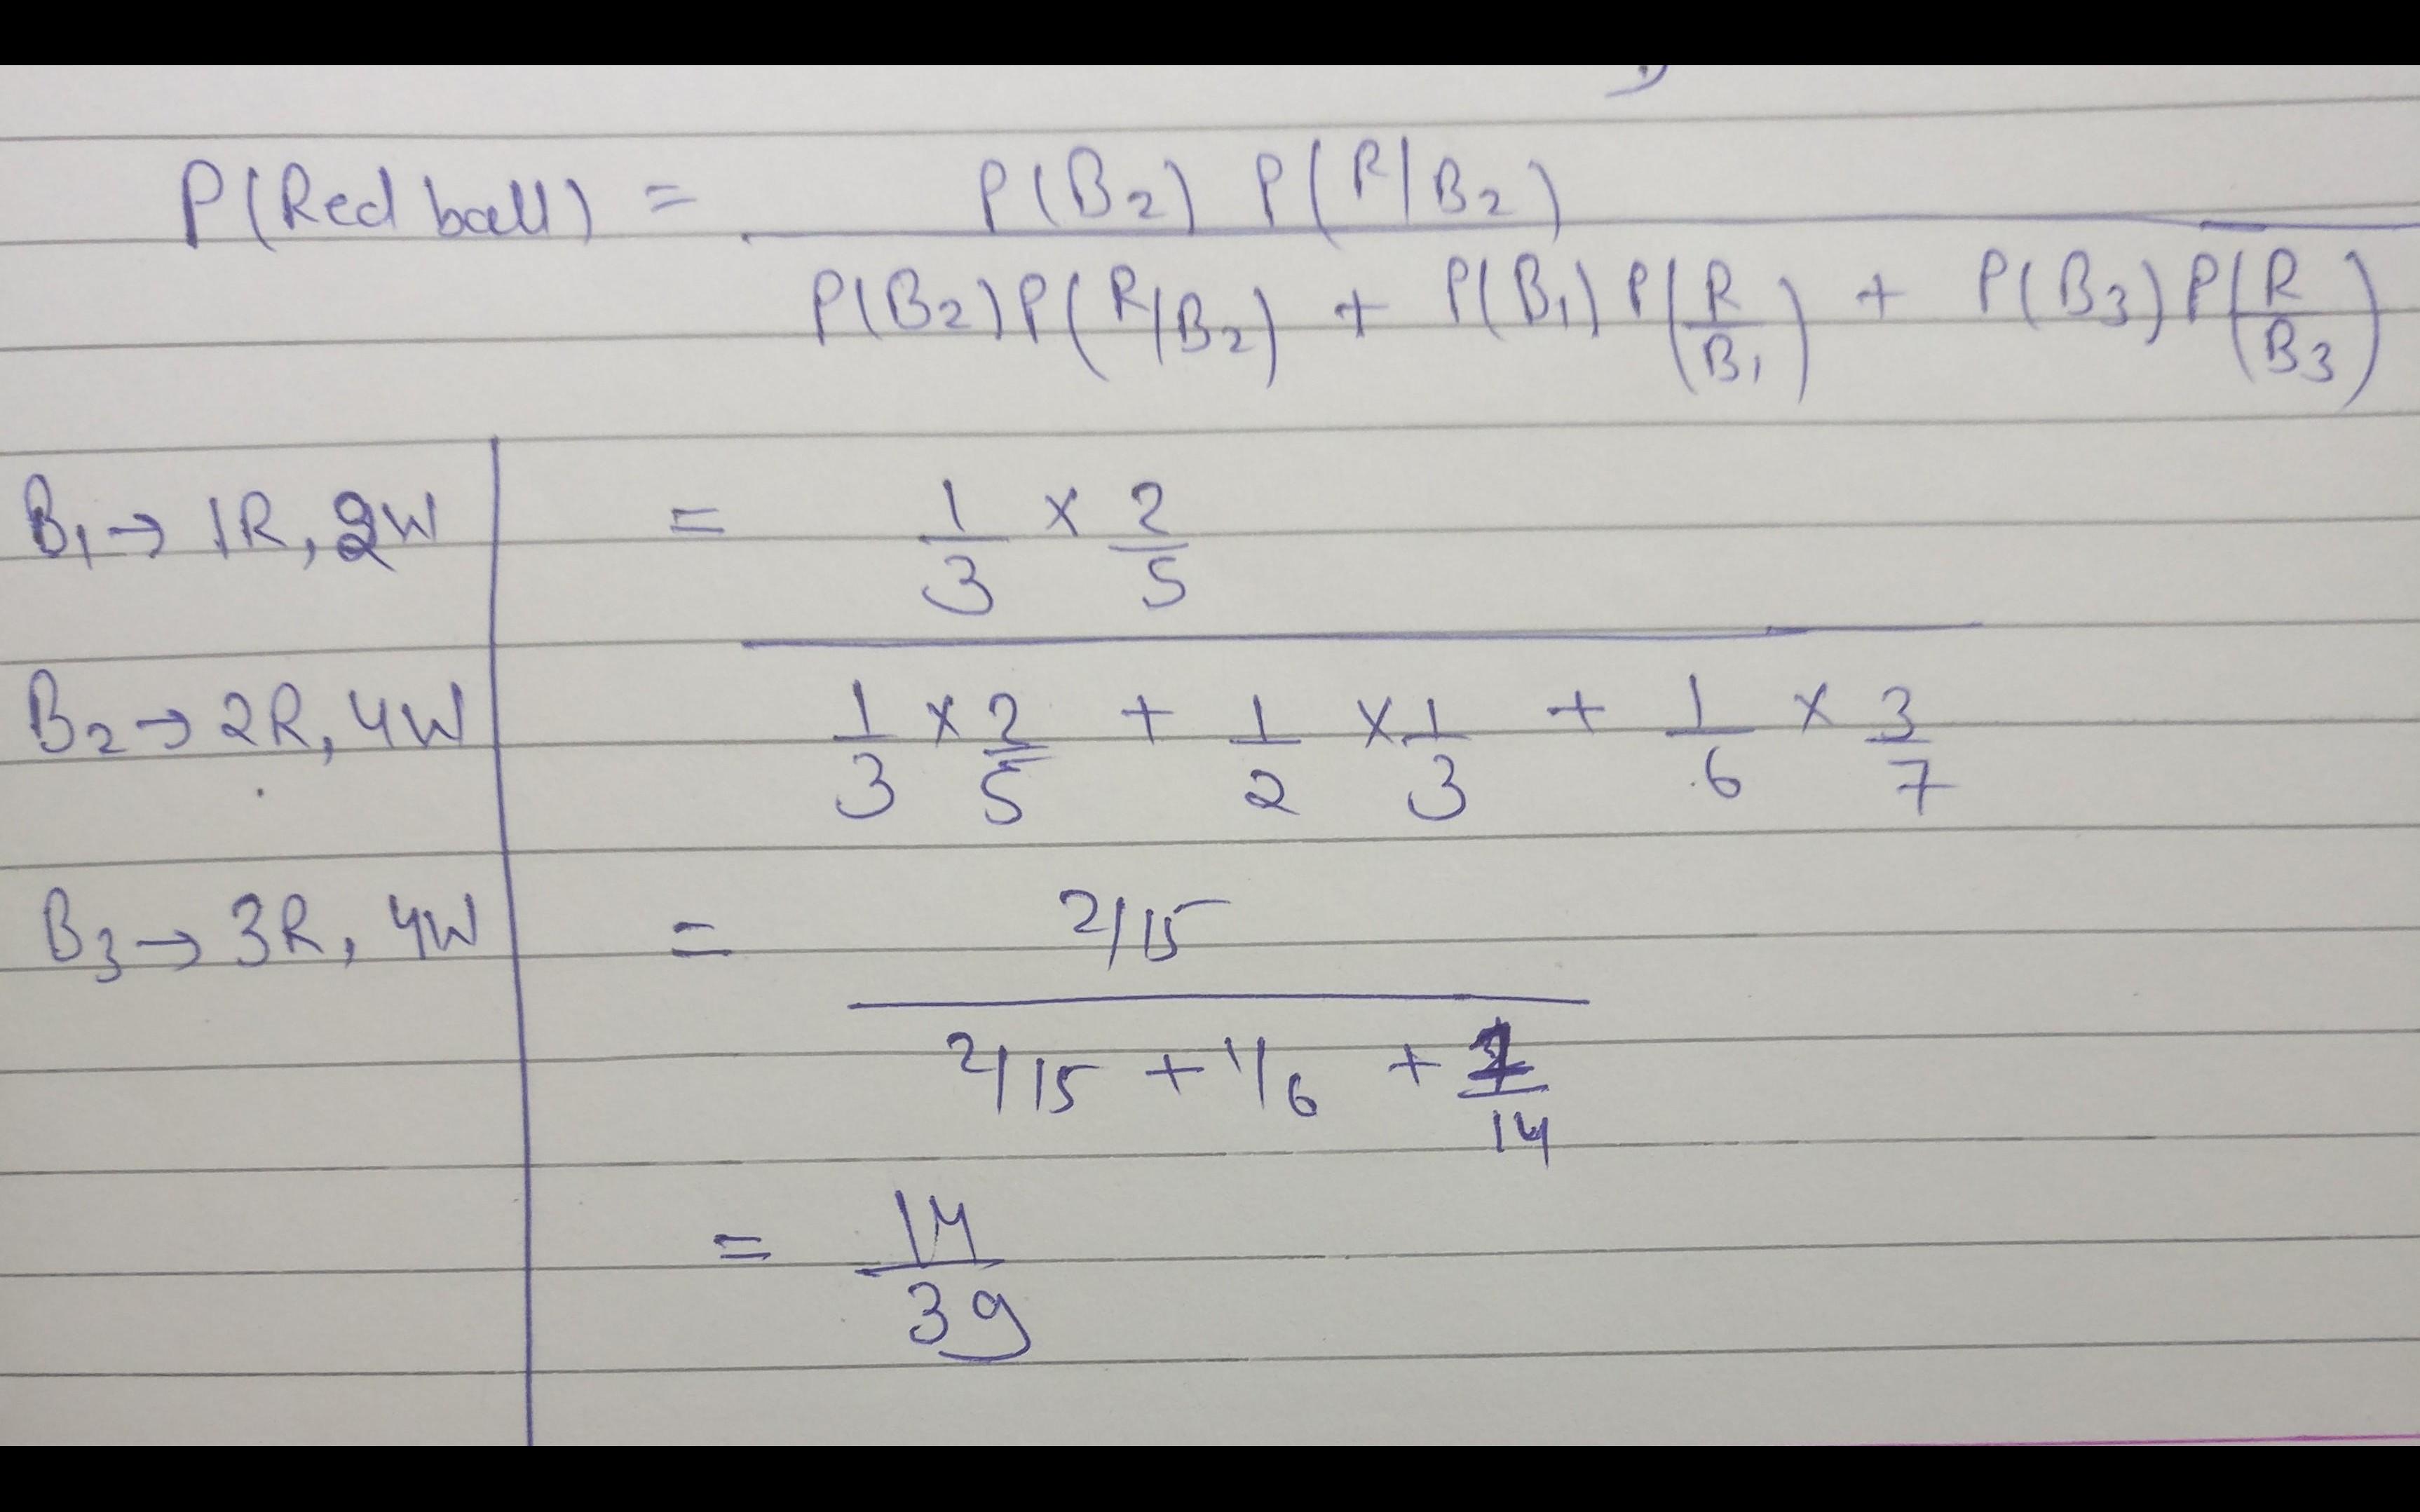 P(Red ball) = P(B2) P(R|B2)
P(B2)P(R/B2) + P(B1) P(R/B1) + P(B3) P(R/B3)
B1 → 1R, 2W = 1/3 × 2/5
B2 → 2R, 4W 1/3 × 2/5 + 1/2 × 1/3 + 1/6 × 3/7
B3 → 3R, 4W = 2/15
2/15 + 1/6 + 1/14
= 14/39